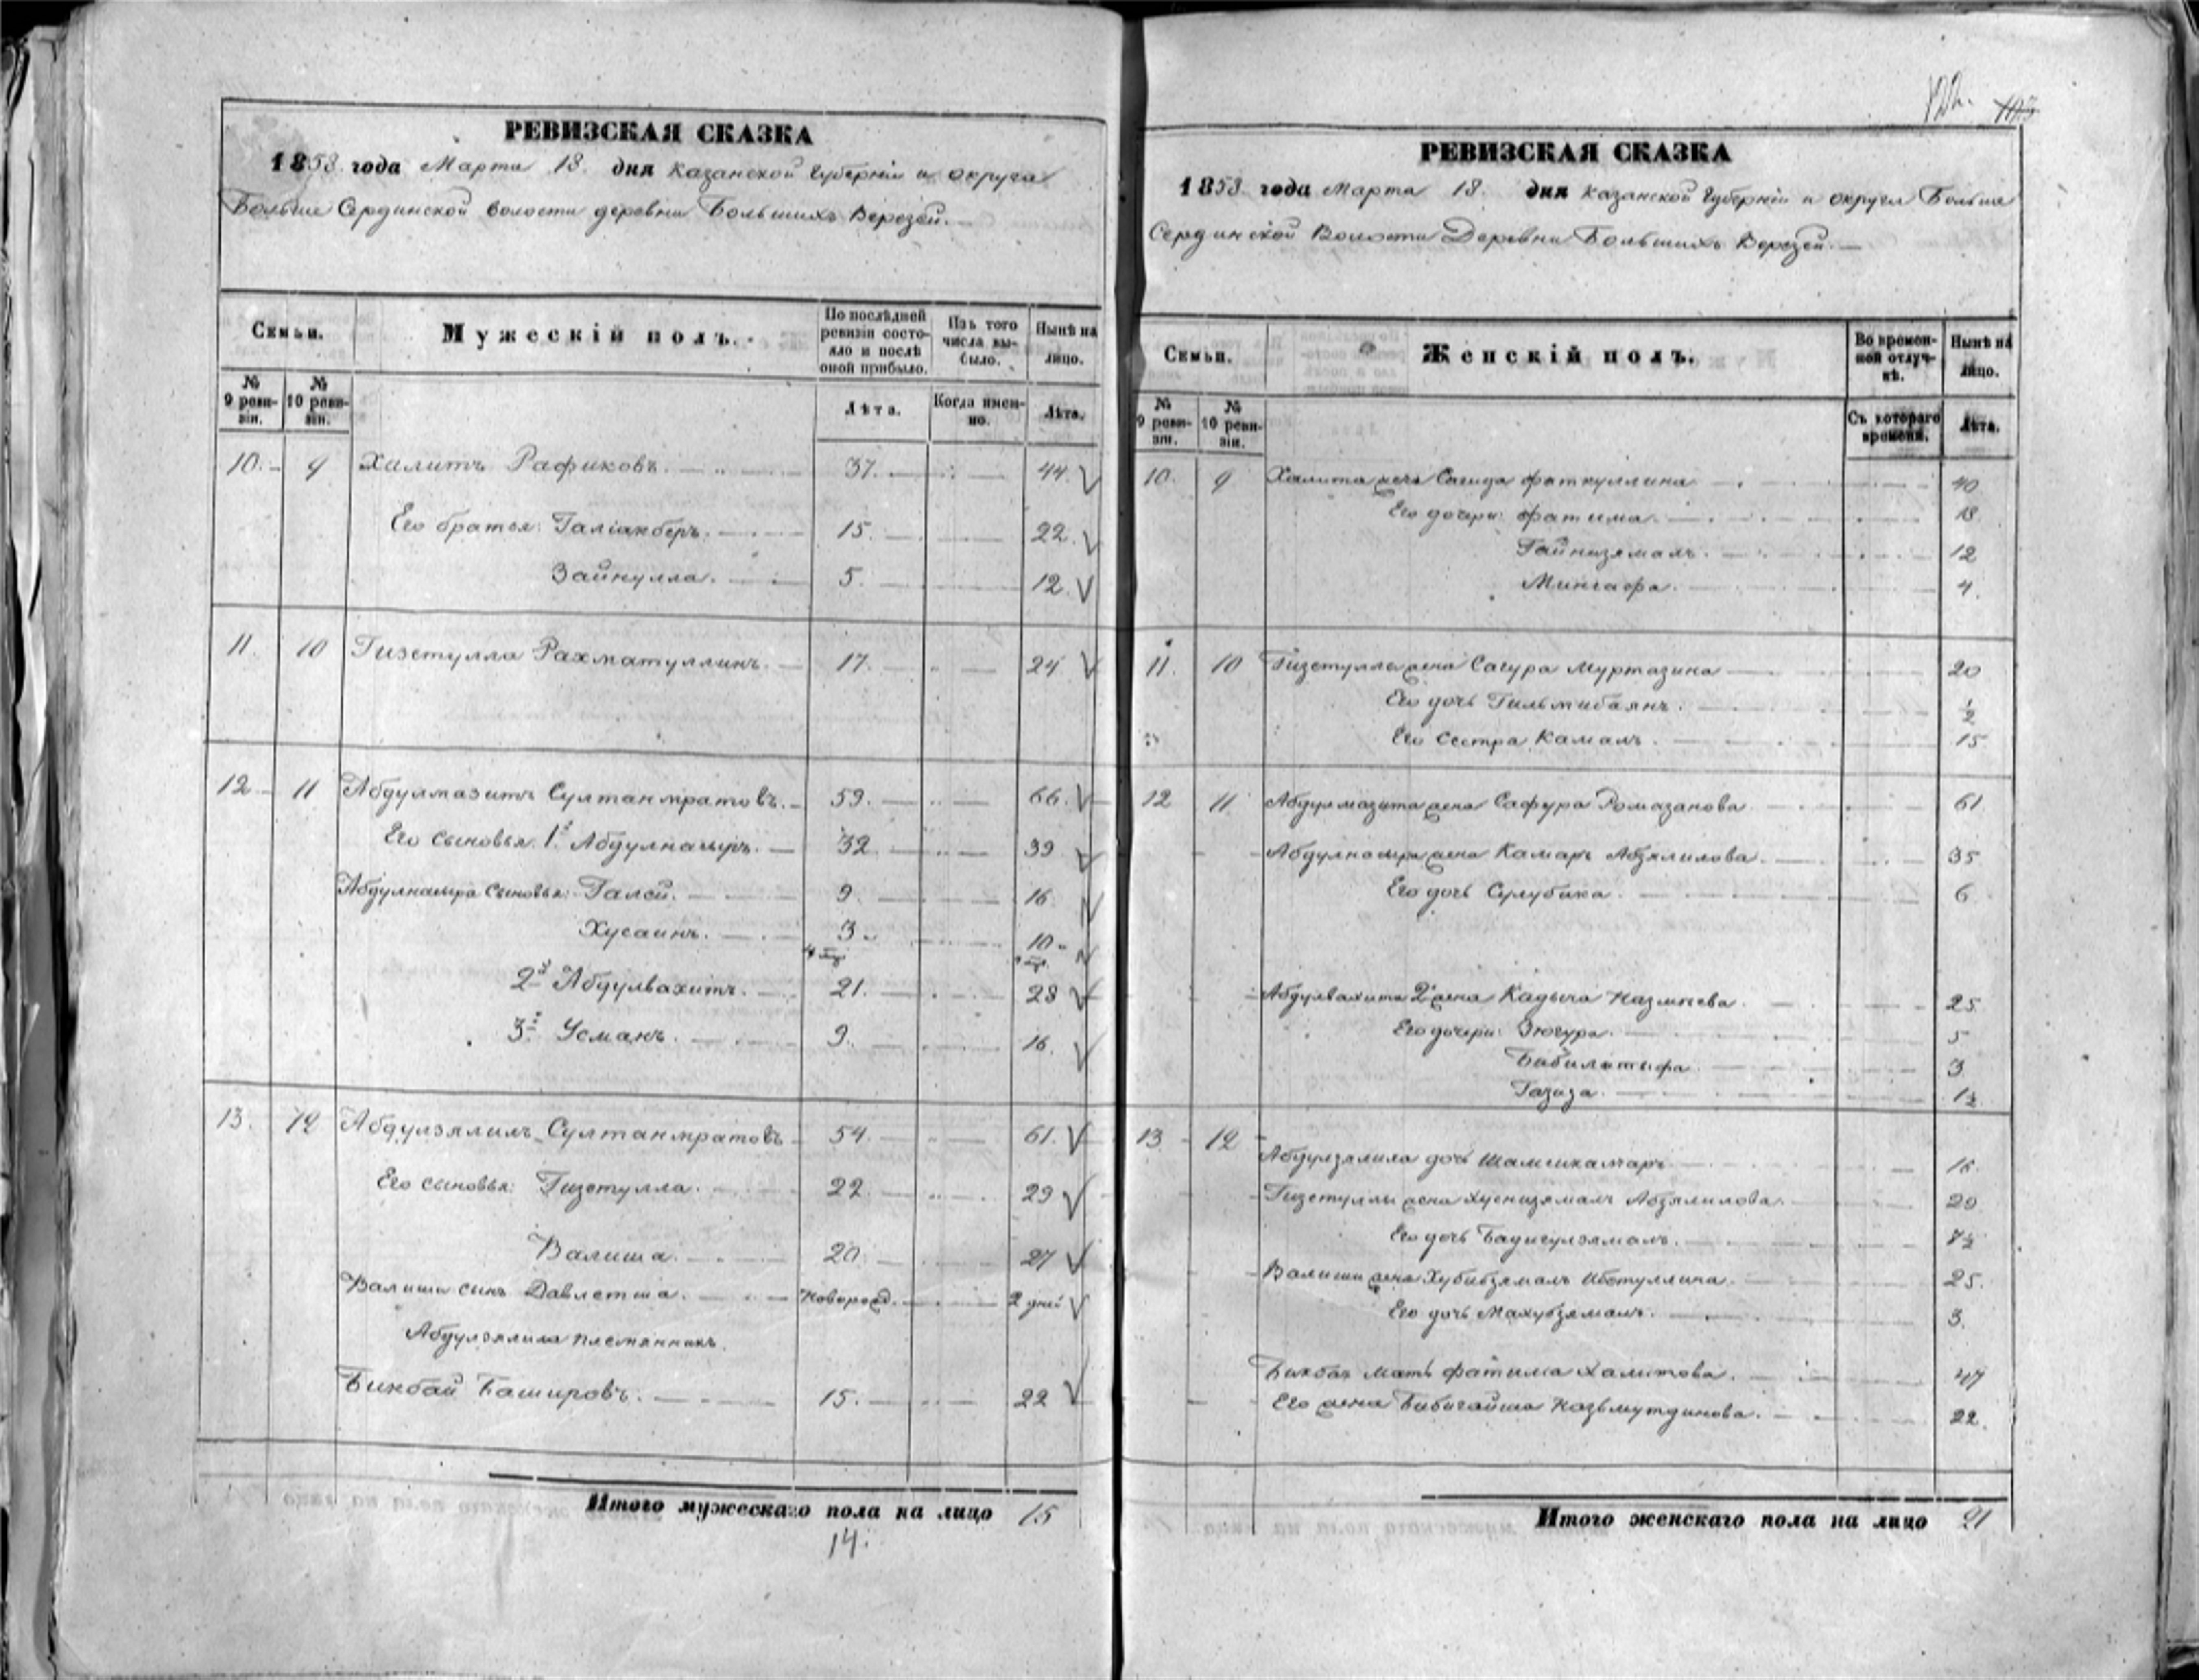 РЕВИЗСКАЯ СКАЗКА
1858 года Марта 18. дня Казанской Губернии и округа
Больше Сердинской волости деревни Большихъ Верезей.
Семьи.
Мужескій полъ.
По послѣдней ревизіи состояло и послѣ оной прибыло.
Изъ того числа выбыло.
Нынѣ на лицо.
№ 9 ревизіи.
№ 10 ревизіи.
Лѣта.
Когда именно.
Лѣта.
10. 9 Халитъ Рафиковъ. 37. 44.
Его братья: Галіакберъ. 15. 22.
Зайнулла. 5. 12.
11. 10 Гизетулла Рахматуллинъ. 17. 24
12 11 Абдулмазитъ Султанмратовъ. 59. 66.
Его сыновья: 1й Абдулнасыръ. 32. 39
Абдулнасыра сыновья: Галей. 9. 16
Хусаинъ. 3. 10
2й Абдулвахитъ. 21. 28
3й Усманъ. 9. 16.
13. 12 Абдулзялилъ Султанмратовъ 54. 61.
Его сыновья: Гизетулла. 22. 29
Валиша. 20. 27
Валиши сынъ Давлетша. новорожд. 2 дней
Абдулзялила племянникъ.
Бикбай Башировъ. 15. 22
Итого мужескаго пола на лицо 15
14.
122. 103
РЕВИЗСКАЯ СКАЗКА
1858 года Марта 18. дня Казанской Губерніи и округа Больше
Сердинской Волости Деревни Большихъ Верезей.
Семьи.
Женскій полъ.
Во временной отлучкѣ.
Нынѣ на лицо.
№ 9 ревизіи.
№ 10 ревизіи.
Съ котораго времени.
Лѣта.
10. 9 Халита жена Сагида Фаткуллина 40
Его дочери: Фатима. 18.
Гайнизямалъ. 12
Мингафа. 4.
11. 10 Гизетуллы жена Сагура Муртазина 20
Его дочь Гильмибаянъ. ½
Его сестра Камалъ. 15
12 11. Абдулмазита жена Сафура Ромазанова 61
Абдулнасыра жена Камаръ Абзялилова. 35
Его дочь Сулубика. 6
Абдулвахита 2я жена Кадыча Назмиева. 25.
Его дочери: Зюгура. 5
Бибилатыфа 3
Газиза. 1½
13 12 Абдулзялила дочь Шамсикамаръ 16
Гизетуллы жена Хуснизямалъ Абзялилова. 20
Его дочь Бадигулзямалъ.
Валиши жена Хубибзямалъ 25.
Его дочь Махубзямалъ. 3.
Бикбая мать Фатима Халитова. 47
Его жена Бибигайша 22.
Итого женскаго пола на лицо 21